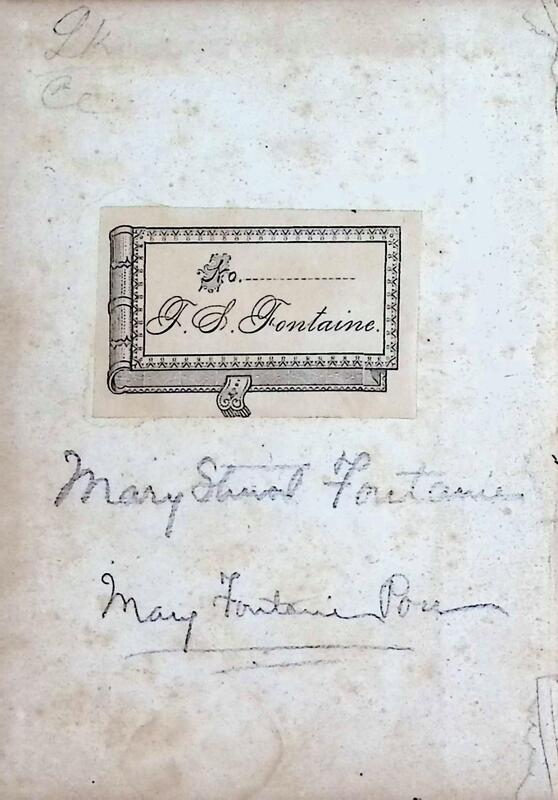 No.
F. S. Fontaine.
Mary Stuart Fontaine
Mary Fontaine